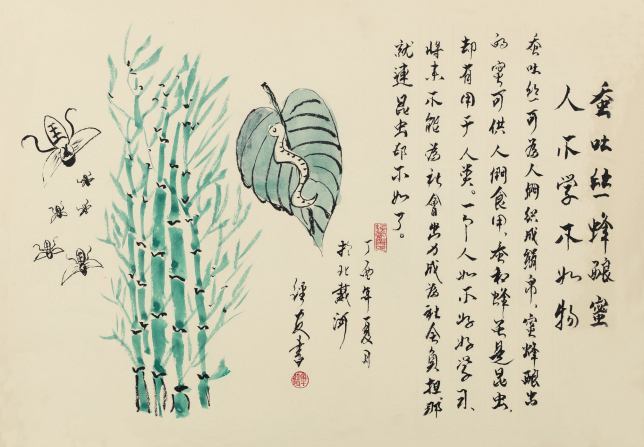 蚕吐丝蜂酿蜜
人不学不如物
蚕吐丝可为人们织成绸帛，蜜蜂酿出
的蜜可供人们食用，蚕和蜂虽是昆虫，
却有用于人类。一个人如不好好学习，
将来不能为社会出力成为社会负担那
就连昆虫却不如了。
丁酉年夏月
于北戴河
经友书